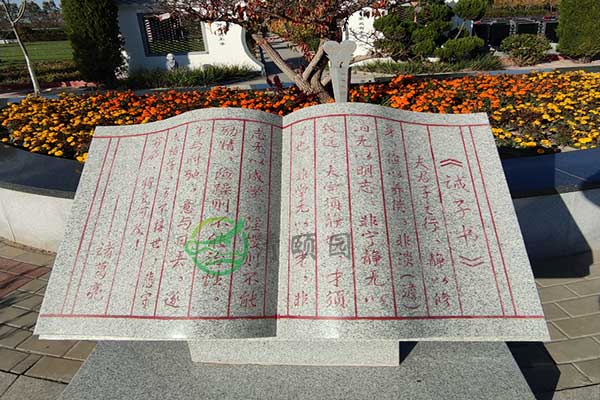 《诫子书》
夫君子之行、静以修
身、俭以养德。非淡（澹）
泊无以明志，非宁静无以
致远。夫学须静也，才须
学也，非学无以广才，非
志无以成学。淫慢则不能
励精，险躁则不能治性。
年与时驰，意与日去，遂
成枯落，多不接世，悲守
穷庐，将复何及！
诸葛亮
颐园